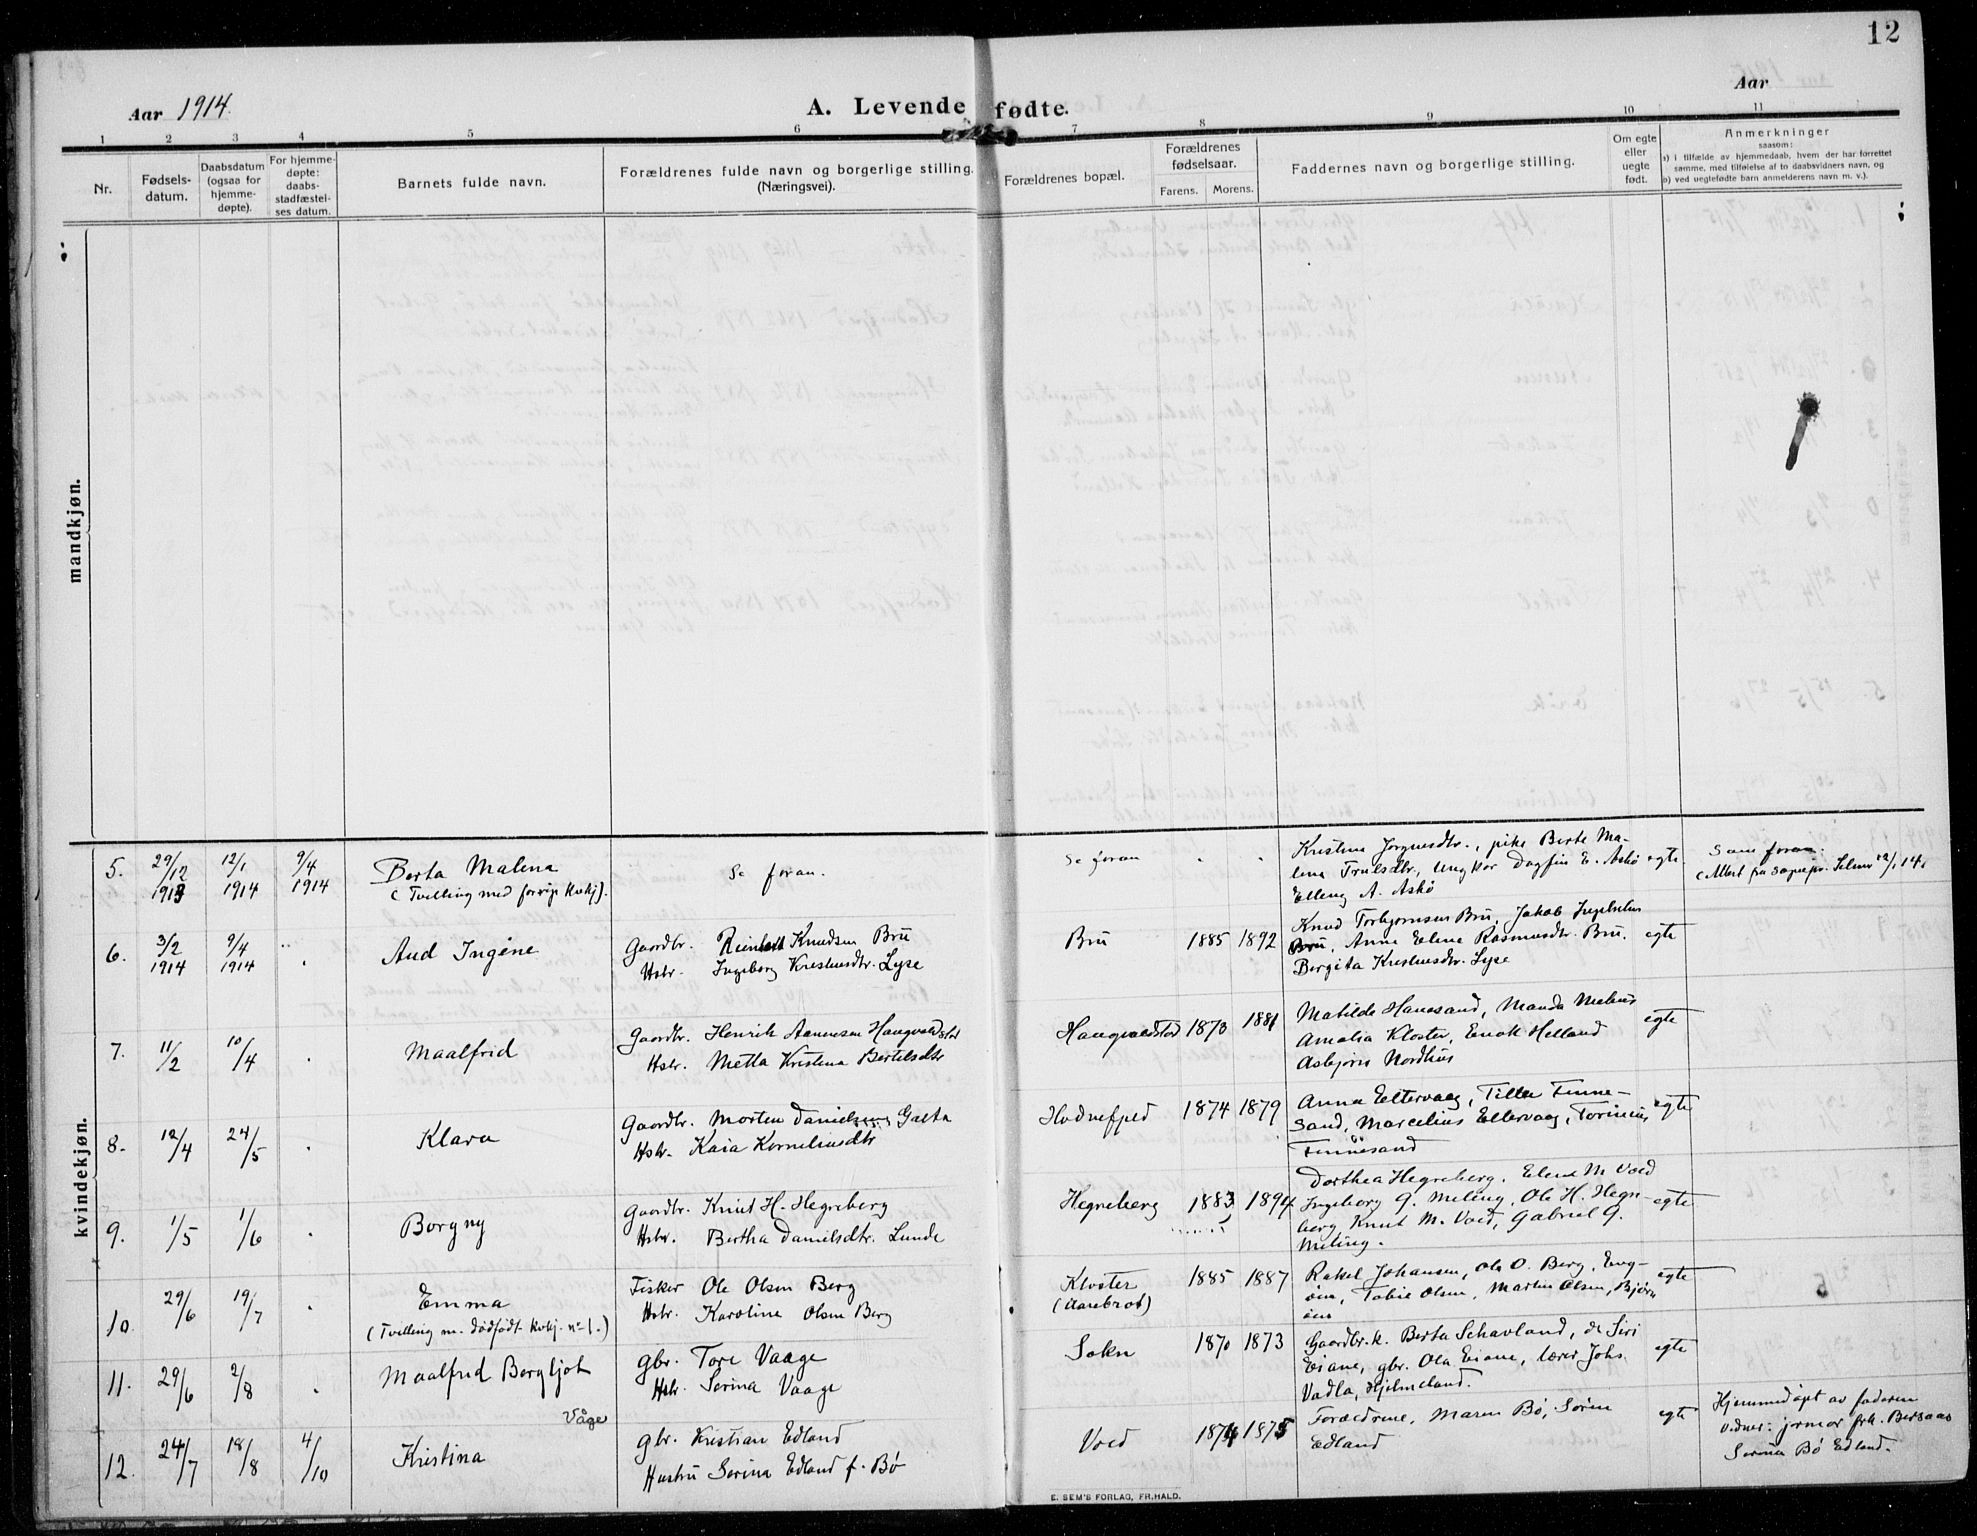 12
Aar 1914.
A. Levende fødte.
Aar
1 2 3 4 5 6 7 8 9 10 11
Nr.
Fødsels-
datum.
Daabsdatum
(ogsaa for
hjemme-
døpte).
For hjemme-
døpte:
daabs-
stadfæstel-
ses datum.
Barnets fulde navn.
Forældrenes fulde navn og borgerlige stilling.
(Næringsvei).
Forældrenes bopæl.
Forældrenes
fødselsaar.
Farens. Morens.
Faddernes navn og borgerlige stilling.
Om egte
eller
uegte
født.
Anmerkninger
saasom:
a) i tilfælde av hjemmedaab, hvem der har forrettet
samme, med tilføielse af to daabsvidners navn, og
b) ved uegtefødte barn anmelderens navn m. v.).
mandkjøn.
kvindekjøn.
5. 29/12 1913 12/1 1914 9/4 1914
Berta Malena
(Tvilling med forrige kvkj).
Se foran.
Se foran
Kristina Jørgensdtr., pike Berte Ma-
lena Trulsdtr, Ungkar Dagfin E. Askø
Elleng A. Askø
egte
Som foran.
6. 3/2 1914 9/4 1914
Aud Ingéne
Gaardbr. Knudsen Bru
Hstr. Ingeborg Kristensdtr. Lyse
Bru 1885 1892
Knud Torbjørnsen Bru, Jakob
Bru, Anna Elene Rasmusdtr. Bru,
Bergita Kristensdtr. Lyse
egte
7. 11/2 10/4
Maalfrid
Gaardbr. Henrik Hangvaldstad
Hstr. Metta Kristina Bertelsdtr
Hangvaldstad 1873 1881
Matilde Hanasand, Manda
Amalia Kloster, Enok Helland
Asbjørn Nordhus
egte
8. 12/4 24/5
Klara
Gaardbr. Morten Danielsen Galta
Hstr. Kaia Korneliusdtr
Hodnefjeld 1874 1879
Anna Eltervaag, Tilla Finne-
sand, Marcelius Eltervaag,
Finnesand
egte
9. 1/5 1/6
Borgny
Gaardbr. Knut H. Hegreberg
Hstr. Bertha Danielsdtr. Lunde
Hegreberg 1883 1894
Dorthea Hegreberg, Elena M. Voed
Ingeborg G. Meling, Ole H. Hegre-
berg Knut M. Voed, Gabriel G.
Meling.
egte
10. 29/6 19/7
Emma
(Tvilling m. dødfødt kvkj. nr 1.)
Fisker Ole Olsen Berg
Hstr. Karoline Olsen Berg
Kloster
1885 1887
Rakel Johansen, Ole O. Berg, Eng-
øen, Tobie Olsen, Martin Olsen, Bjørn
øen
egte
11. 29/6 2/8
Maalfrid Bergljot
Våge
Gbr. Tore Vaage
Hstr. Serina Vaage
Sokn 1870 1873
Gaardbr.k. Berta Schavland, do Siri
Eiane, gbr. Ola Eiane, lærer Johs.
Vadla, Hjelmeland.
egte
12. 24/7 18/8 4/10
Kristina
Gbr. Kristian Edland
Hustru Serina Edland f. Bø
Voed 1874 1875
Forældrene, Maren Bø, Søren
Edland
egte
Hjemmedøpt av faderen
Vidner: jormor frk. Bersaas
Serina Bø Edland.
E. SEM'S FORLAG, FR.HALD.